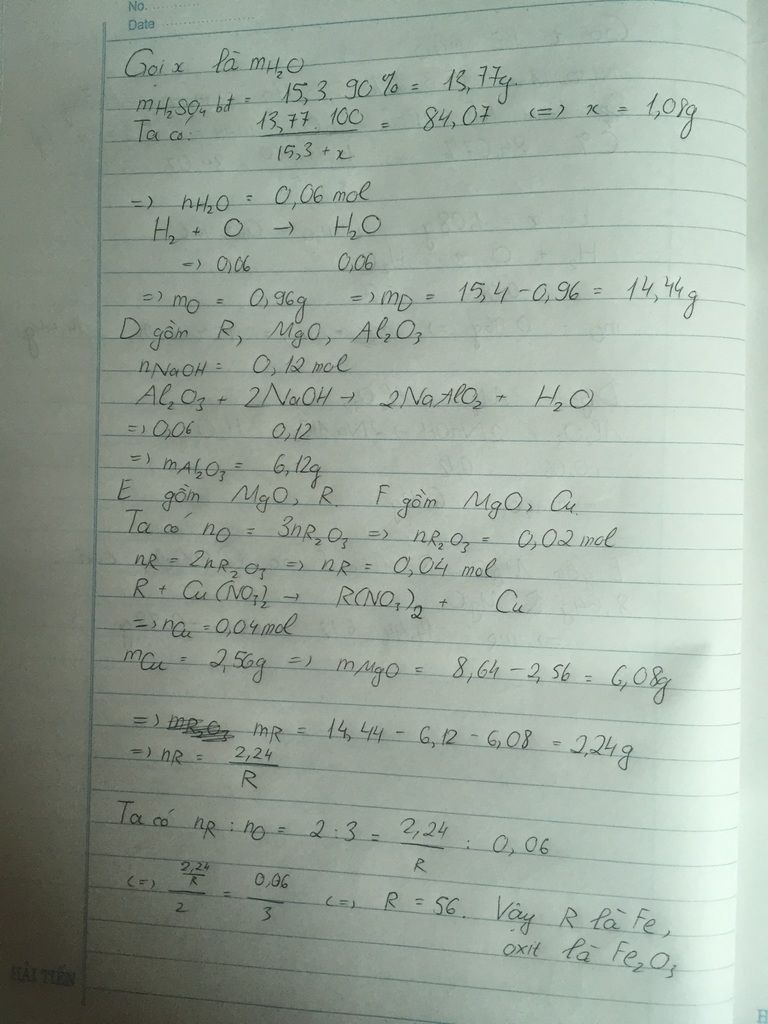 No.
Date
Gọi x là mH₂O
mH₂SO₄ bđ = 15,3 . 90% = 13,77g.
Ta có: 13,77 . 100 / 15,3 + x = 84,07 <=> x = 1,08g
=> nH₂O = 0,06 mol
H₂ + O → H₂O
=> 0,06 0,06
=> mO = 0,96g => mD = 15,4 - 0,96 = 14,44g
D gồm R, MgO, Al₂O₃
nNaOH = 0,12 mol
Al₂O₃ + 2NaOH → 2NaAlO₂ + H₂O
=> 0,06 0,12
=> mAl₂O₃ = 6,12g
E gồm MgO, R. F gồm MgO, Cu
Ta có nO = 3nR₂O₃ => nR₂O₃ = 0,02 mol
nR = 2nR₂O₃ => nR = 0,04 mol
R + Cu(NO₃)₂ → R(NO₃)₂ + Cu
=> nCu = 0,04 mol
mCu = 2,56g => mMgO = 8,64 - 2,56 = 6,08g
=> mR₂O₃ mR = 14,44 - 6,12 - 6,08 = 2,24g
=> nR = 2,24 / R
Ta có nR : nO = 2 : 3 = 2,24 / R : 0,06
<=> 2,24/R / 2 = 0,06 / 3 <=> R = 56. Vậy R là Fe,
oxit là Fe₂O₃
HẢI TIẾN